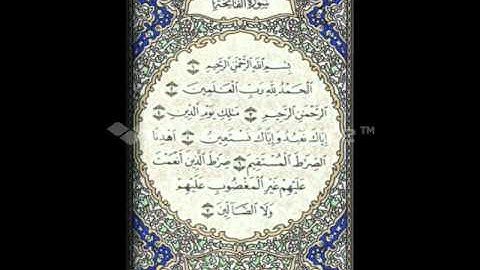 سُورَةُ الفَاتِحَةِ
بِسْمِ اللَّهِ الرَّحْمَٰنِ الرَّحِيمِ ۝
الْحَمْدُ لِلَّهِ رَبِّ الْعَٰلَمِينَ ۝
الرَّحْمَٰنِ الرَّحِيمِ ۝ مَٰلِكِ يَوْمِ الدِّينِ ۝
إِيَّاكَ نَعْبُدُ وَإِيَّاكَ نَسْتَعِينُ ۝ اهْدِنَا
الصِّرَٰطَ الْمُسْتَقِيمَ ۝ صِرَٰطَ الَّذِينَ أَنْعَمْتَ
عَلَيْهِمْ غَيْرِ الْمَغْضُوبِ عَلَيْهِمْ
وَلَا الضَّآلِّينَ ۝
™